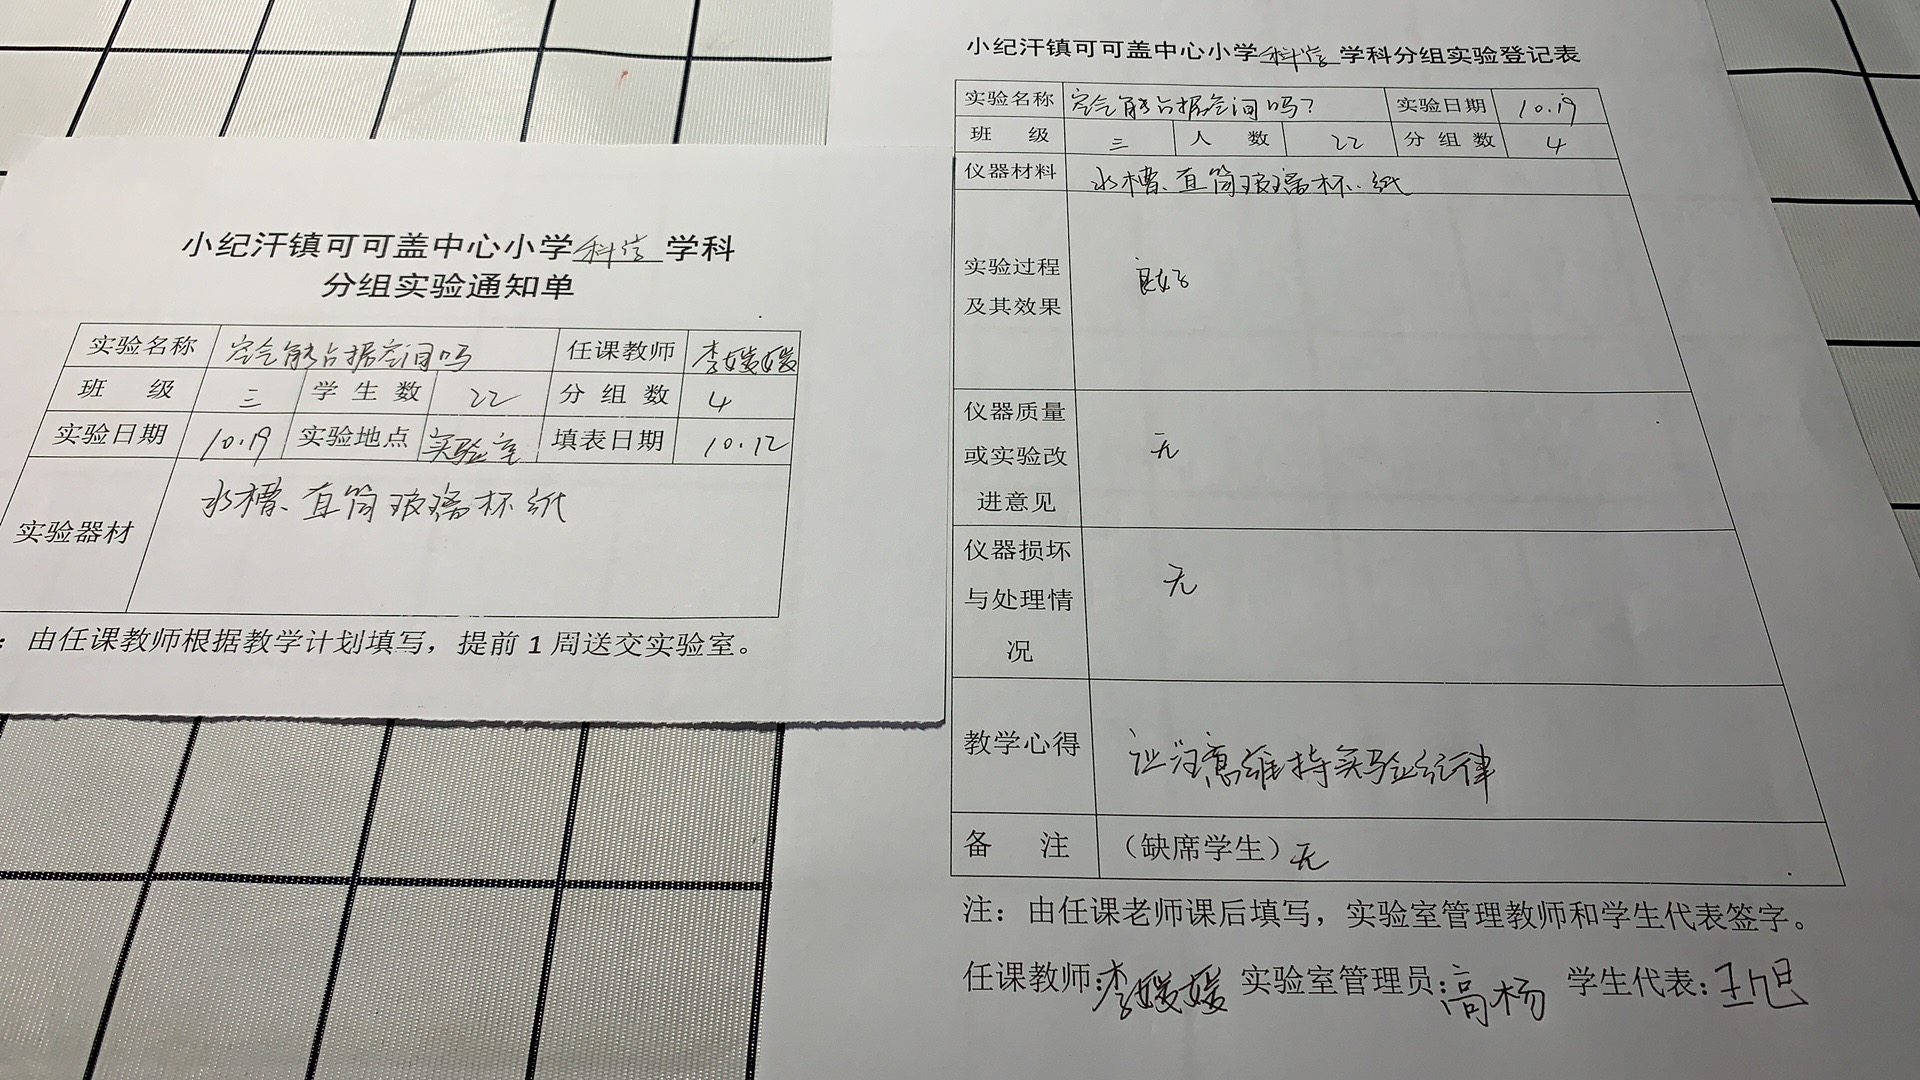 小纪汗镇可可盖中心小学科学学科
分组实验通知单
实验名称 空气能占据空间吗 任课教师 李媛媛
班 级 三 学生数 22 分组数 4
实验日期 10.19 实验地点 实验室 填表日期 10.12
实验器材 水槽、直筒玻璃杯、纸
：由任课教师根据教学计划填写，提前1周送交实验室。
小纪汗镇可可盖中心小学科学学科分组实验登记表
实验名称 空气能占据空间吗？ 实验日期 10.19
班 级 三 人 数 22 分组数 4
仪器材料 水槽、直筒玻璃杯、纸
实验过程
及其效果
良好
仪器质量
或实验改
进意见
无
仪器损坏
与处理情
况
无
教学心得 注意维持实验纪律
备 注 （缺席学生）无
注：由任课老师课后填写，实验室管理教师和学生代表签字。
任课教师：李媛媛 实验室管理员：高杨 学生代表：王旭